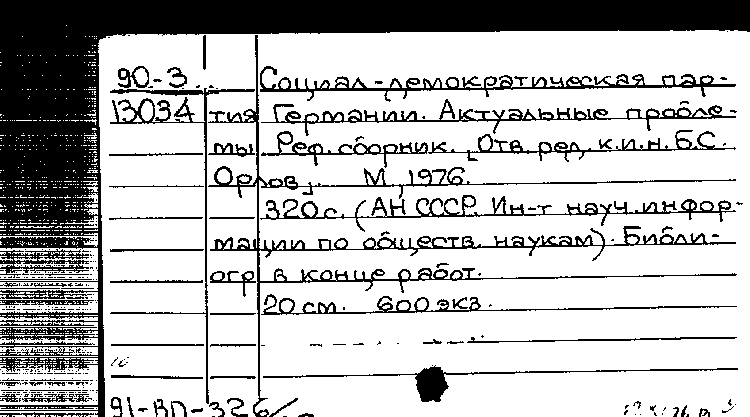 90-3 Социал-демократическая пар-
13034 тия Германии. Актуальные пробле-
мы. Реф. сборник. [Отв. ред. к.и.н. Б.С.
Орлов]. М., 1976.
320 с. (АН СССР. Ин-т науч. инфор-
мации по обществ. наукам). Библи-
огр. в конце работ.
20 см. 600 экз.
16